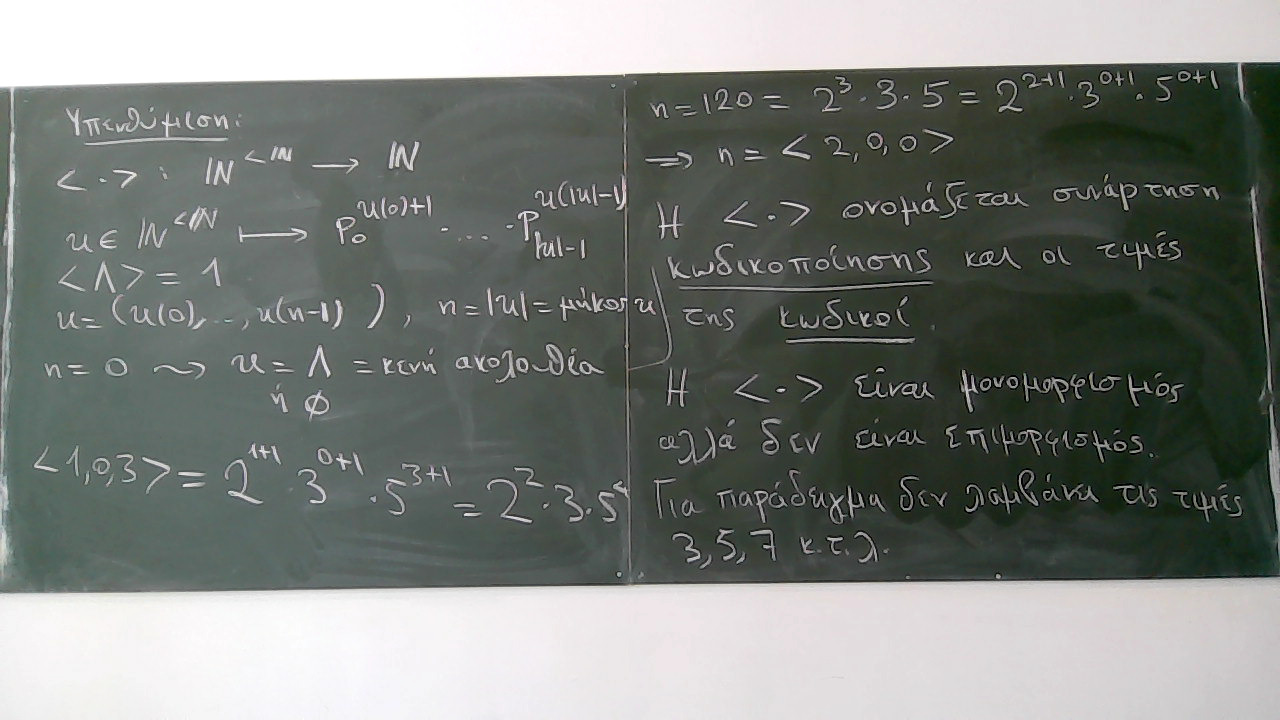 Υπενθύμιση:
<·> : ℕ^{<ℕ} → ℕ
u ∈ ℕ^{<ℕ} ↦ p_0^{u(0)+1} · … · p_{|u|-1}^{u(|u|-1)
<Λ> = 1
u = (u(0), .., u(n-1) ), n = |u| = μήκος u
n = 0 ⇝ u = Λ = κενή ακολουθία
ή ∅
<1,0,3> = 2^{1+1} · 3^{0+1} · 5^{3+1} = 2^2 · 3 · 5^4
n = 120 = 2^3 · 3 · 5 = 2^{2+1} · 3^{0+1} · 5^{0+1}
⇒ n = <2,0,0>
Η <·> ονομάζεται συνάρτηση
κωδικοποίησης και οι τιμές
της κωδικοί.
Η <·> είναι μονομορφισμός
αλλά δεν είναι επιμορφισμός.
Για παράδειγμα δεν λαμβάνει τις τιμές
3, 5, 7 κ.τ.λ.